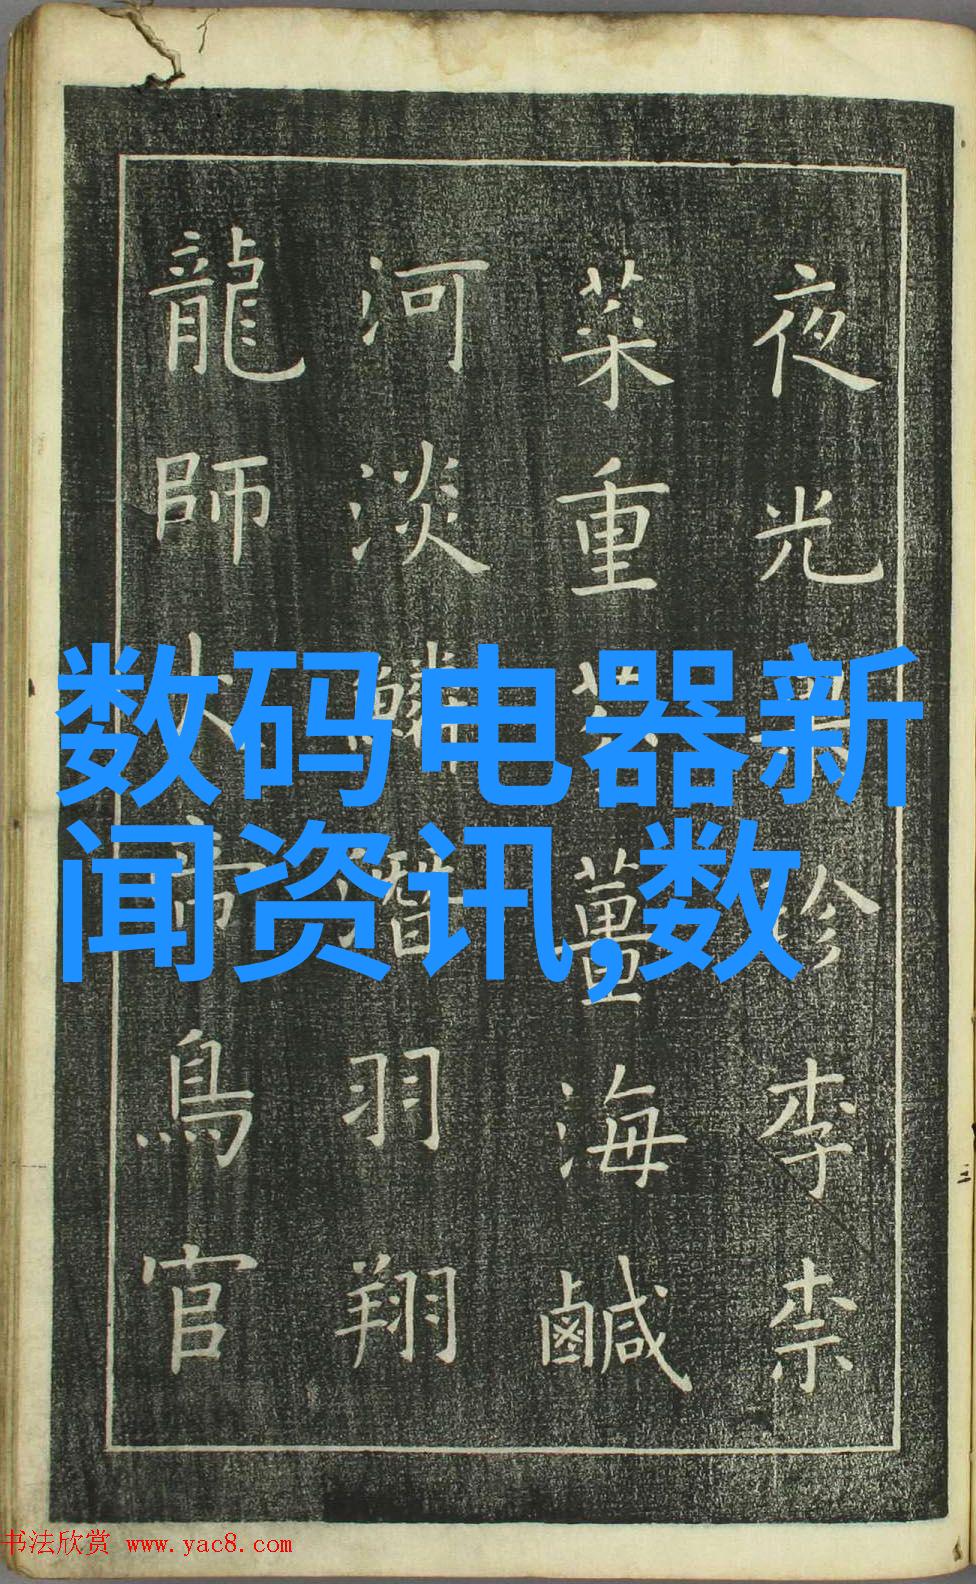 夜光果珍李柰
菜重芥薑海鹹
河淡鱗潛羽翔
龍師火帝鳥官
数码电器新
闻资讯,数
书法欣赏 www.yac8.com